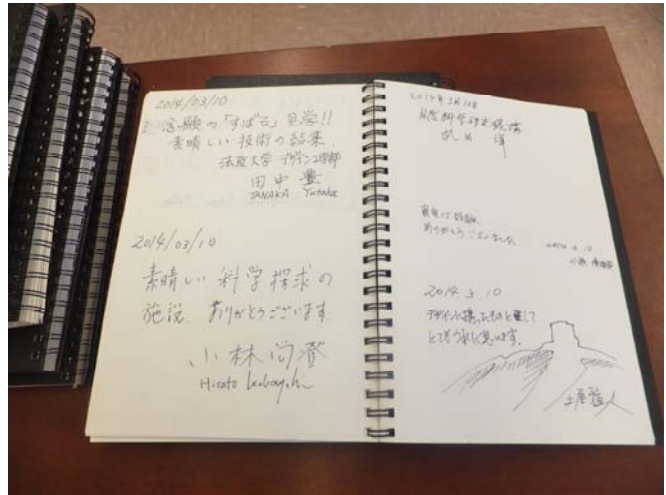 2014/03/10
念願の「すばる」見学!!
素晴しい技術の結果.
法政大学 デザイン工学部
田中 豊
TANAKA Yutaka
2014/03/10
素晴しい科学探求の
施設 ありがとうございます
小林尚登
Hisato Kobayashi
2014年3月10日
貴重な経験、
ありがとうございました
2014.3.10
2014.3.10
デザインに携ったものとして
とてもうれしく思います。
土屋雅人